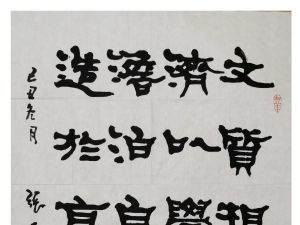 文質相
濟以學
澹泊自
造於
己丑冬月 張